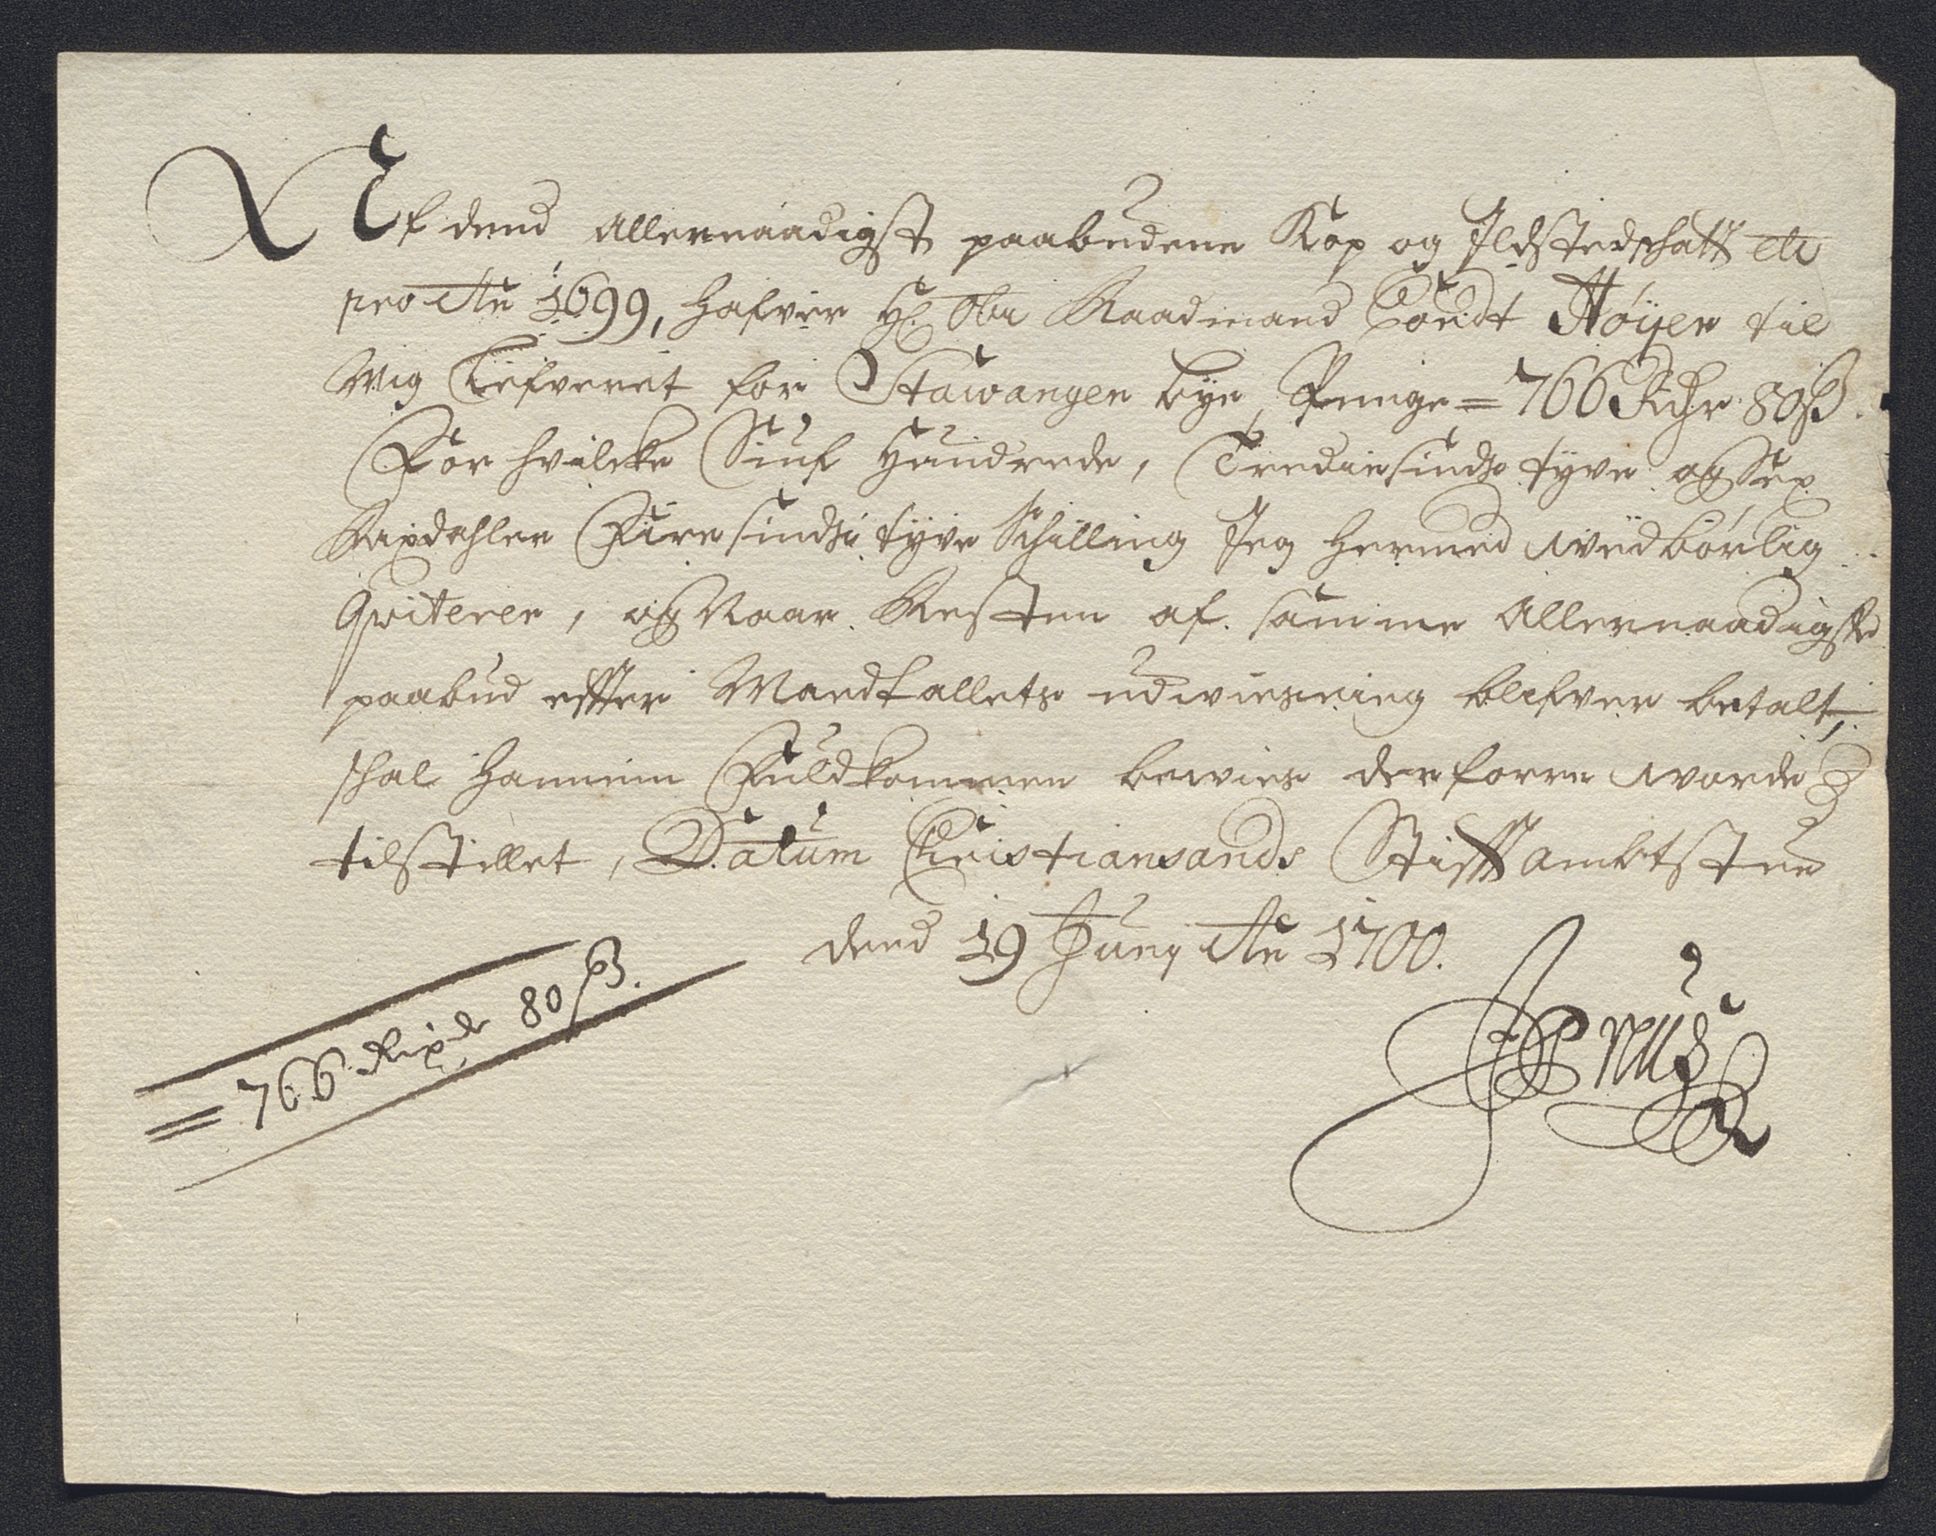 Af dend allernaadigst paabudene Kop og Ildstedschatt etc
pro Ao 1699, hafver Hr. Raadmand Cordt Höyer til
Mig Lefveret for Stawanger bye, Penge = 766 Rdr 80 ß.
For hvilcke Siuf Hundrede, Trediesindstyve og Sex
Rixdahler Firesindstyve Schilling Jeg hermed wedbörlig
Qviterer, og Naar Resten af samme Allernaadigste
paabud effter Mandtallets udwiesning blefver betalt,
schal hannem Fuldkommen bewies derforre worde
tilstillet, Datum Christiansands Stifftambtstue
dend 19 Junij Ao 1700.
= 766 Rixdr 80 ß.